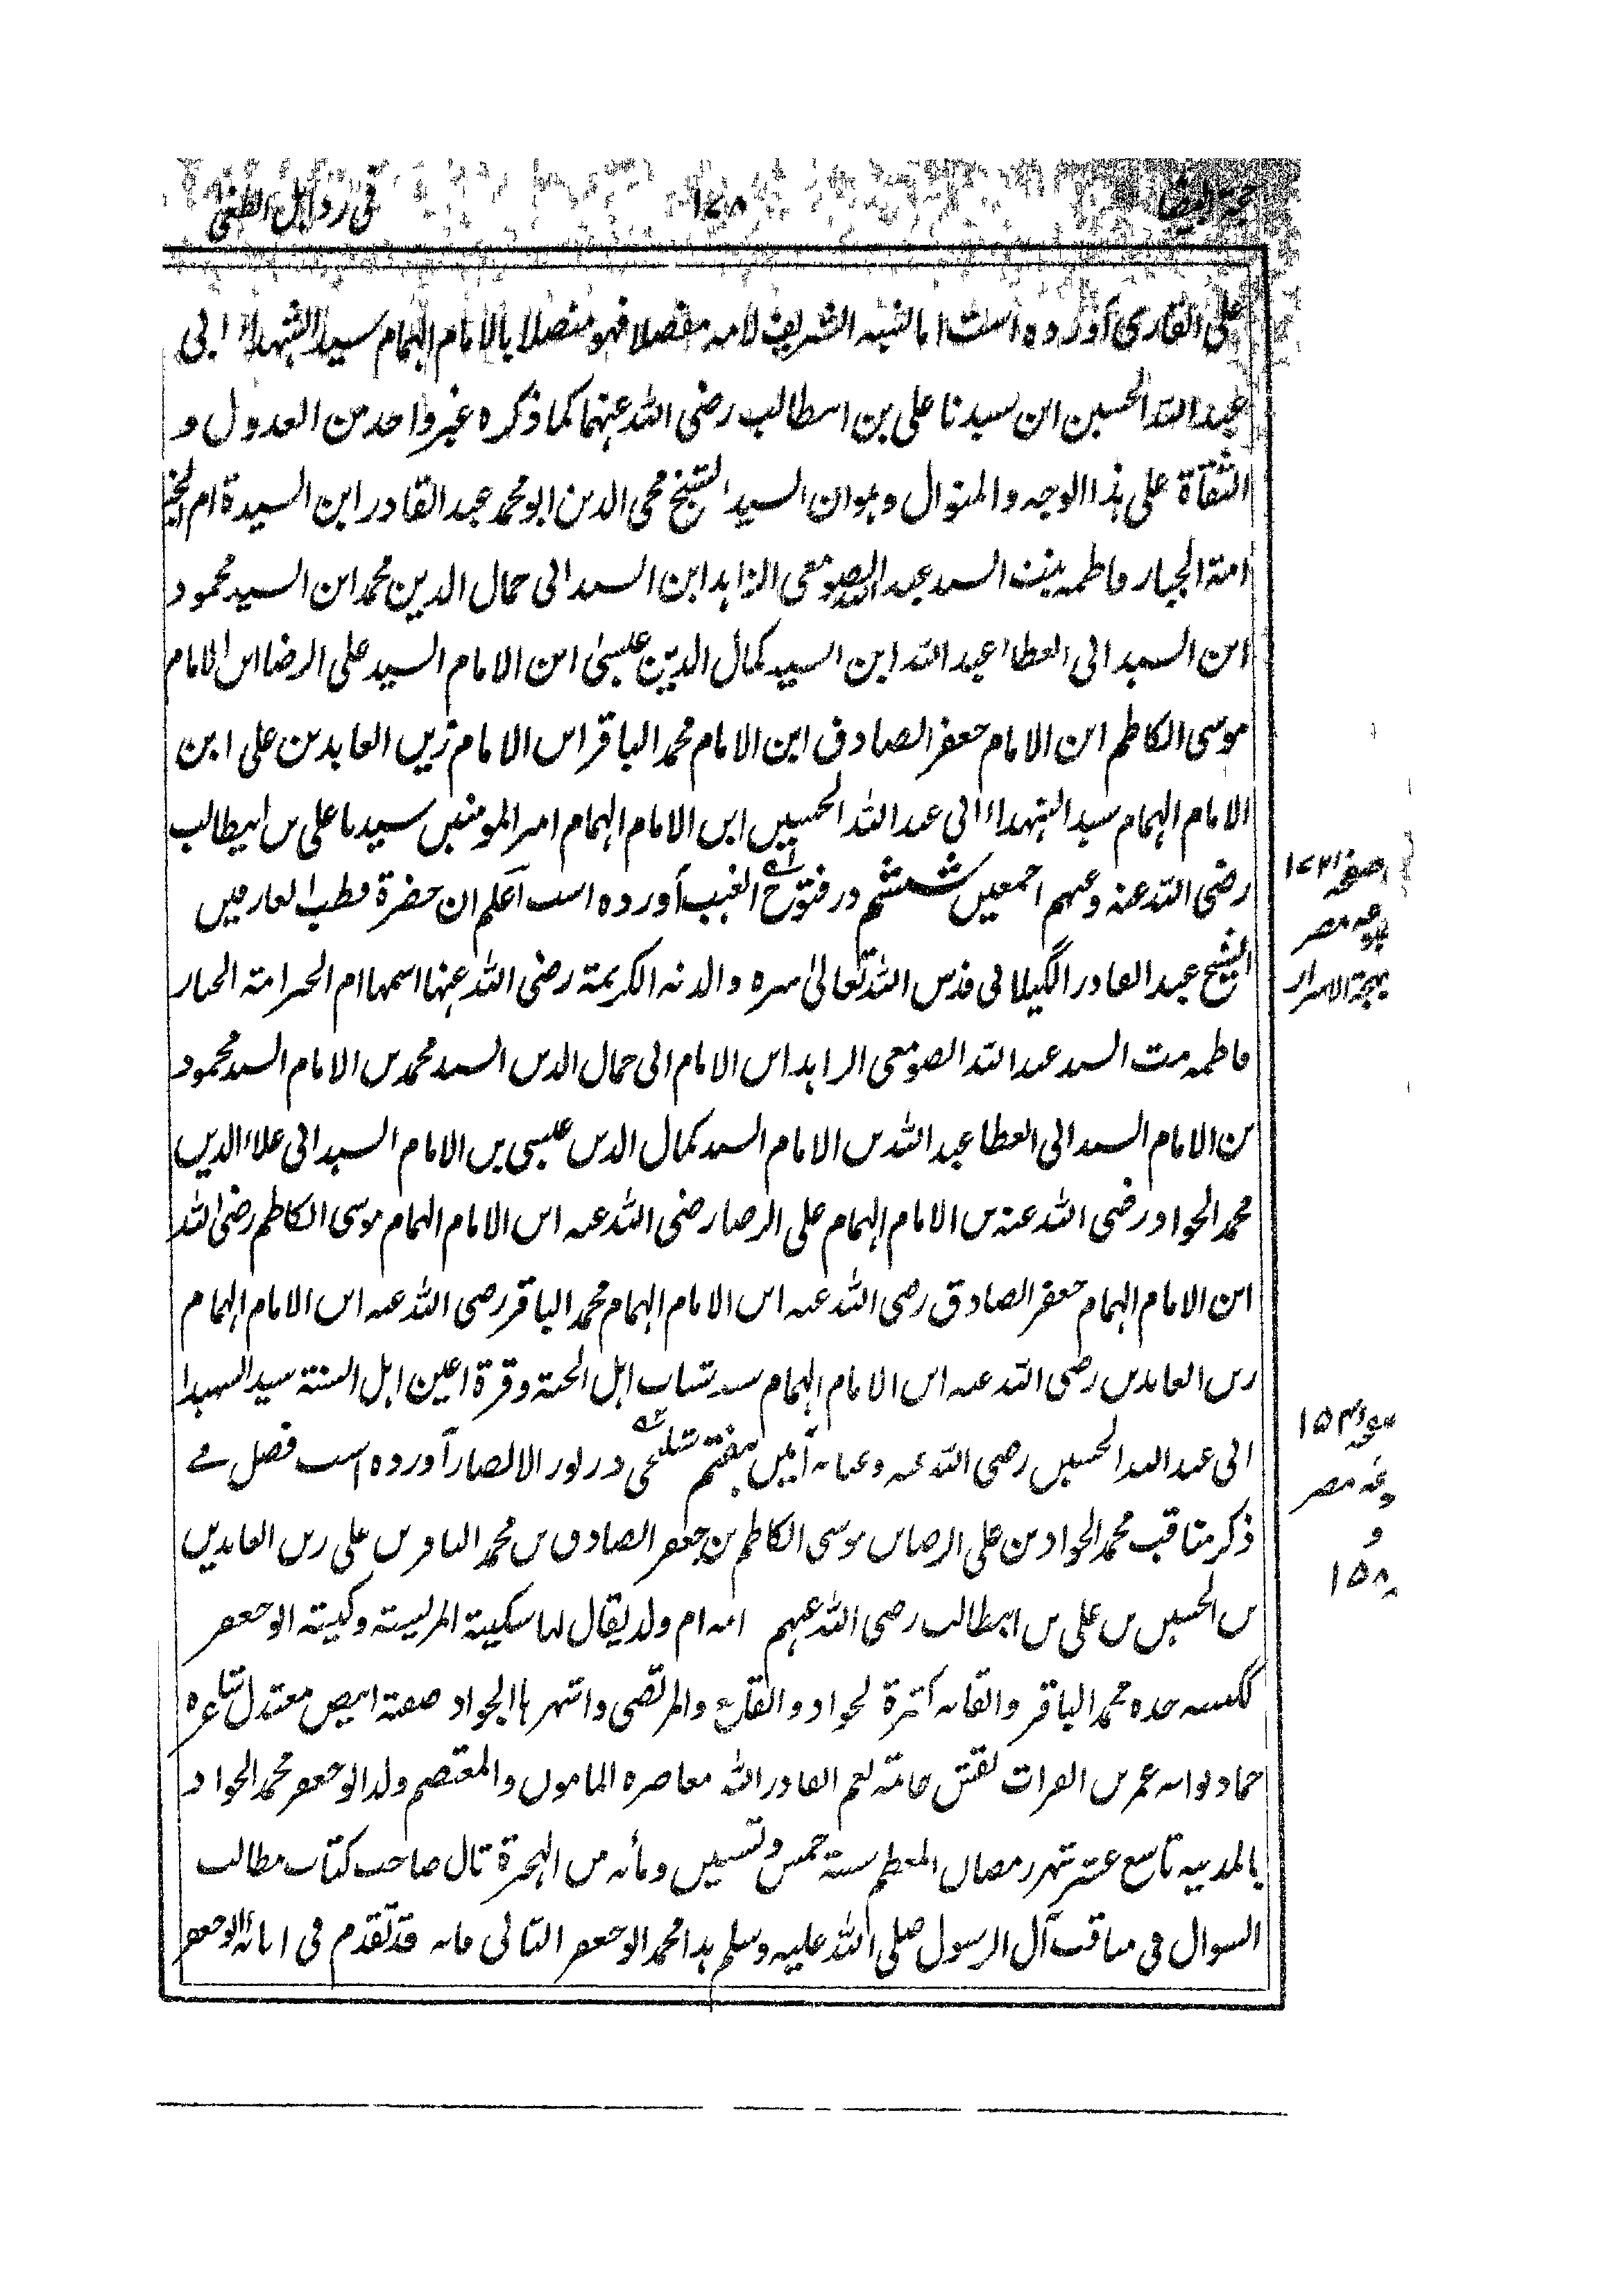 في رد اہل الطغی
۱۷۸
علی القاری آوردہ است اما نسبہ الشریف لامہ مفصلا فهو متصلا بالامام الہمام سید الشہداء ابی
عبداللہ الحسین ابن سیدنا علی بن ابیطالب رضی اللہ عنہما کما ذکرہ غیر واحد من العدول و
الثقاة علی ہذا الوجہ والمنوال وہو ان السید الشیخ محی الدین ابو محمد عبد القادر ابن السیدة ام الخیر
امة الجبار فاطمہ بنت السید عبداللہ الصومعی الزاہد ابن السید ابی جمال الدین محمد ابن السید محمود
ابن السید ابی العطاء عبداللہ ابن السید کمال الدین عیسیٰ ابن الامام السید علی الرضا ابن الامام
موسی الکاظم ابن الامام جعفر الصادق ابن الامام محمد الباقر ابن الامام زین العابدین علی ابن
الامام الہمام سید الشہداء ابی عبداللہ الحسین ابن الامام الہمام امیر المومنین سیدنا علی بن ابیطالب
رضی اللہ عنہ وعنہم اجمعین ششم در فتوح الغیب آوردہ است اعلم ان حضرة قطب العارفین
الشیخ عبد القادر الگیلانی قدس اللہ تعالیٰ سرہ والدتہ الکریمة رضی اللہ عنہا اسمہا ام الخیر امة الجبار
فاطمہ بنت السید عبداللہ الصومعی الزاہد ابن الامام ابی جمال الدین السید محمد بن الامام السید محمود
بن الامام السید ابی العطا عبداللہ بن الامام السید کمال الدین عیسی بن الامام السید ابی علاء الدین
محمد الجواد رضی اللہ عنہ بن الامام الہمام علی الرضا رضی اللہ عنہ ابن الامام الہمام موسی الکاظم رضی اللہ
ابن الامام الہمام جعفر الصادق رضی اللہ عنہ ابن الامام الہمام محمد الباقر رضی اللہ عنہ ابن الامام الہمام
زین العابدین رضی اللہ عنہ ابن الامام الہمام سید شباب اہل الجنة وقرة اعین اہل السنة سید الشہدا
ابی عبداللہ الحسین رضی اللہ عنہ وعنا بہ آمین ہفتم شبلنجی در نور الابصار آوردہ است فصل فے
ذکر مناقب محمد الجواد بن علی الرضا بن موسی الکاظم بن جعفر الصادق بن محمد الباقر بن علی زین العابدین
بن الحسین بن علی بن ابیطالب رضی اللہ عنہم امہ ام ولد یقال لہا سکینة المریسیة وکنیتہ ابو جعفر
ککنیتہ جدہ محمد الباقر والقابہ کثیرة الجواد والقانع والمرتضی واشہرہا الجواد صفتہ ابیض معتدل شاعرہ
حماد بوابہ عمر بن الفرات نقش خاتمہ نعم القادر اللہ معاصرہ المامون والمعتصم ولد ابو جعفر محمد الجواد
بالمدینہ تاسع عشر شہر رمضان المعظم سنة خمس وتسعین ومأتہ من الہجرة قال صاحب کتاب مطالب
السوال فی مناقب آل الرسول صلی اللہ علیہ وسلم ہذا محمد ابو جعفر الثانی فانہ قد تقدم فی ابائہ ابو جعفر
صفحہ ۱۷۲
مصر
بہجة الاسرار
۱۵۴
مصر
و
۱۵۸